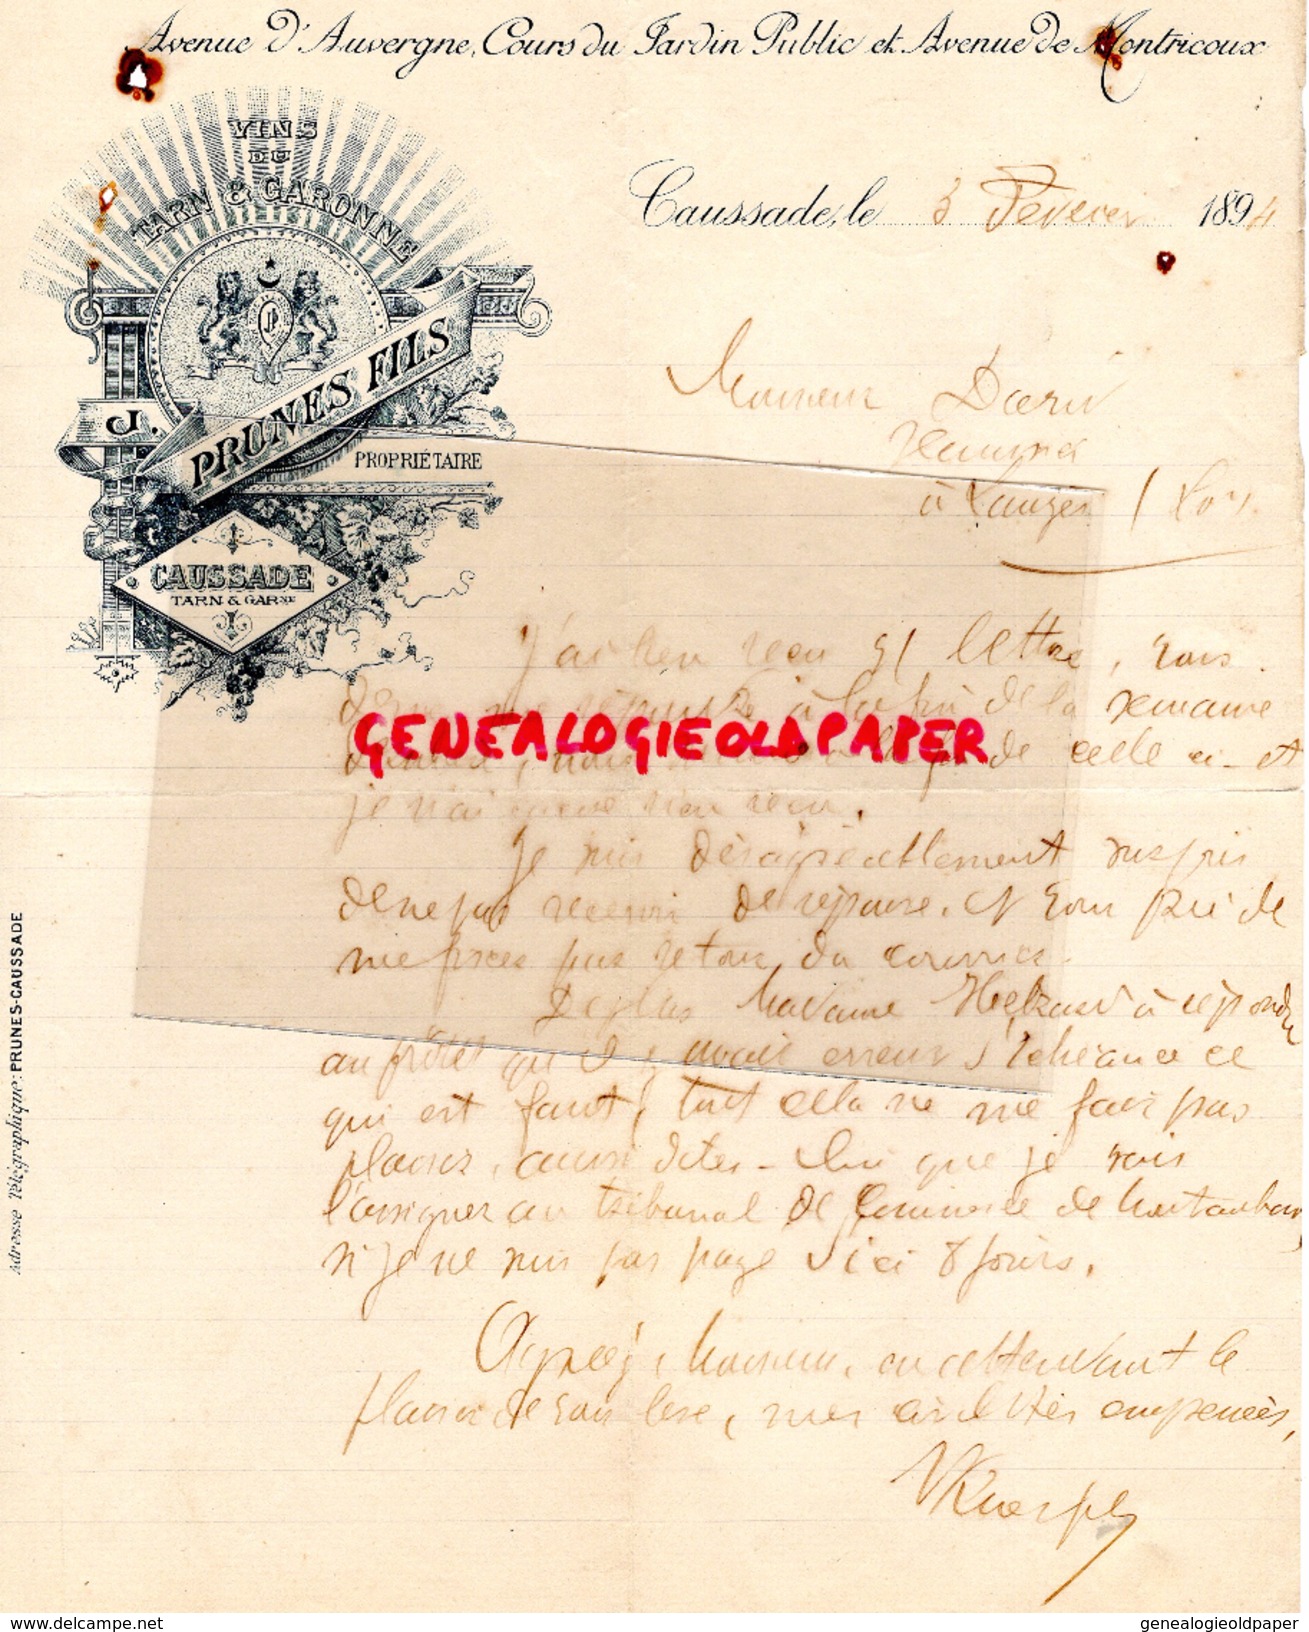 Avenue d'Auvergne, Cours du Jardin Public et Avenue de Montricoux
VINS
DU
TARN & GARONNE
J. PRUNES FILS
PROPRIÉTAIRE
CAUSSADE
TARN & GARNE
Caussade, le 5 Fevrier 1894
Monsieur
à
J'ai bien reçu lettre, vous
à la fin de la semaine
de celle ci et
je n'ai rien reçu.
GENEALOGIEOLDPAPER
Je suis désagréablement surpris
de ne pas recevoir de réponse, et vous prie de
me fixer par retour du courrier.
De plus Madame à répondu
au protêt qu'il y avait erreur d'échéance ce
qui est faux, tout cela ne me fait pas
plaisir, aussi dites-lui que je vais
l'assigner au tribunal de Commerce de Montauban
si je ne suis pas payé d'ici 8 jours.
Agréez, Monsieur, en attendant le
plaisir de vous lire, mes civilités empressées,
Adresse Télégraphique: PRUNES-CAUSSADE
www.delcampe.net
genealogieoldpaper